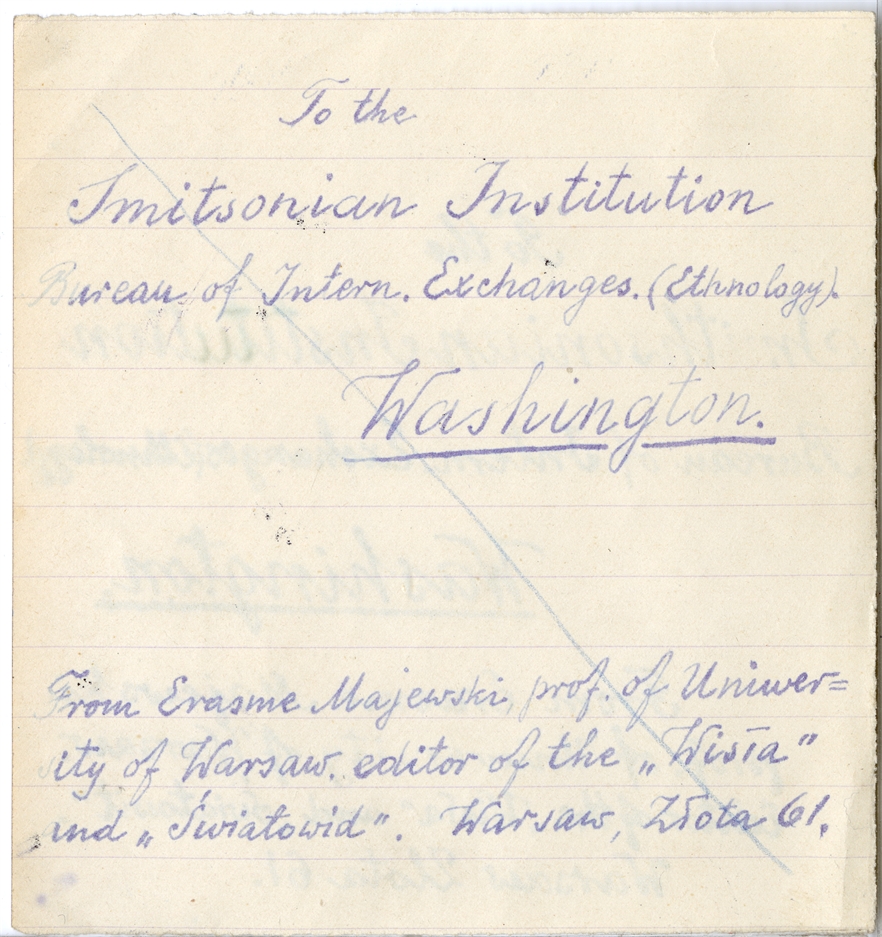 To the
Smitsonian Institution
Bureau of Intern. Exchanges. (Ethnology).
Washington.
From Erasme Majewski, prof. of Uniwer=
sity of Warsaw, editor of the „Wisła”
and „Światowid”. Warsaw, Złota 61.